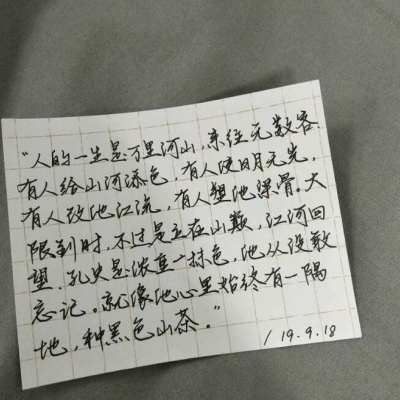 "人的一生是万里河山，来往无数客，
有人给山河添色，有人使日月无光，
有人改他江流，有人塑他深骨。大
限到时，不过是立在山巅，江河回
望。孔大是浓重一抹色，他从没敢
忘记。就像他心里始终有一隅
地，种黑色山茶。"
/ 19.9.18